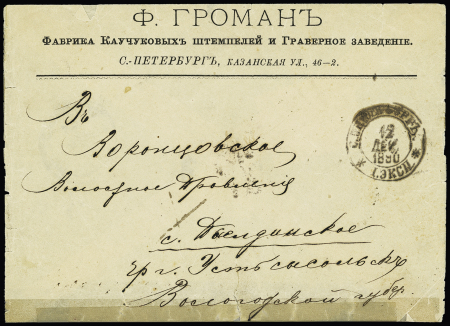 Ф. ГРОМАНЪ
ФАБРИКА КАУЧУКОВЫХЪ ШТЕМПЕЛЕЙ И ГРАВЕРНОЕ ЗАВЕДЕНІЕ.
С.-ПЕТЕРБУРГЪ, КАЗАНСКАЯ УЛ., 46—2.
Въ
Воронцовское
Волостное Правленіе
12
ДЕК.
1890
с.
чр г. Устьсысольскъ
Вологодской губер.